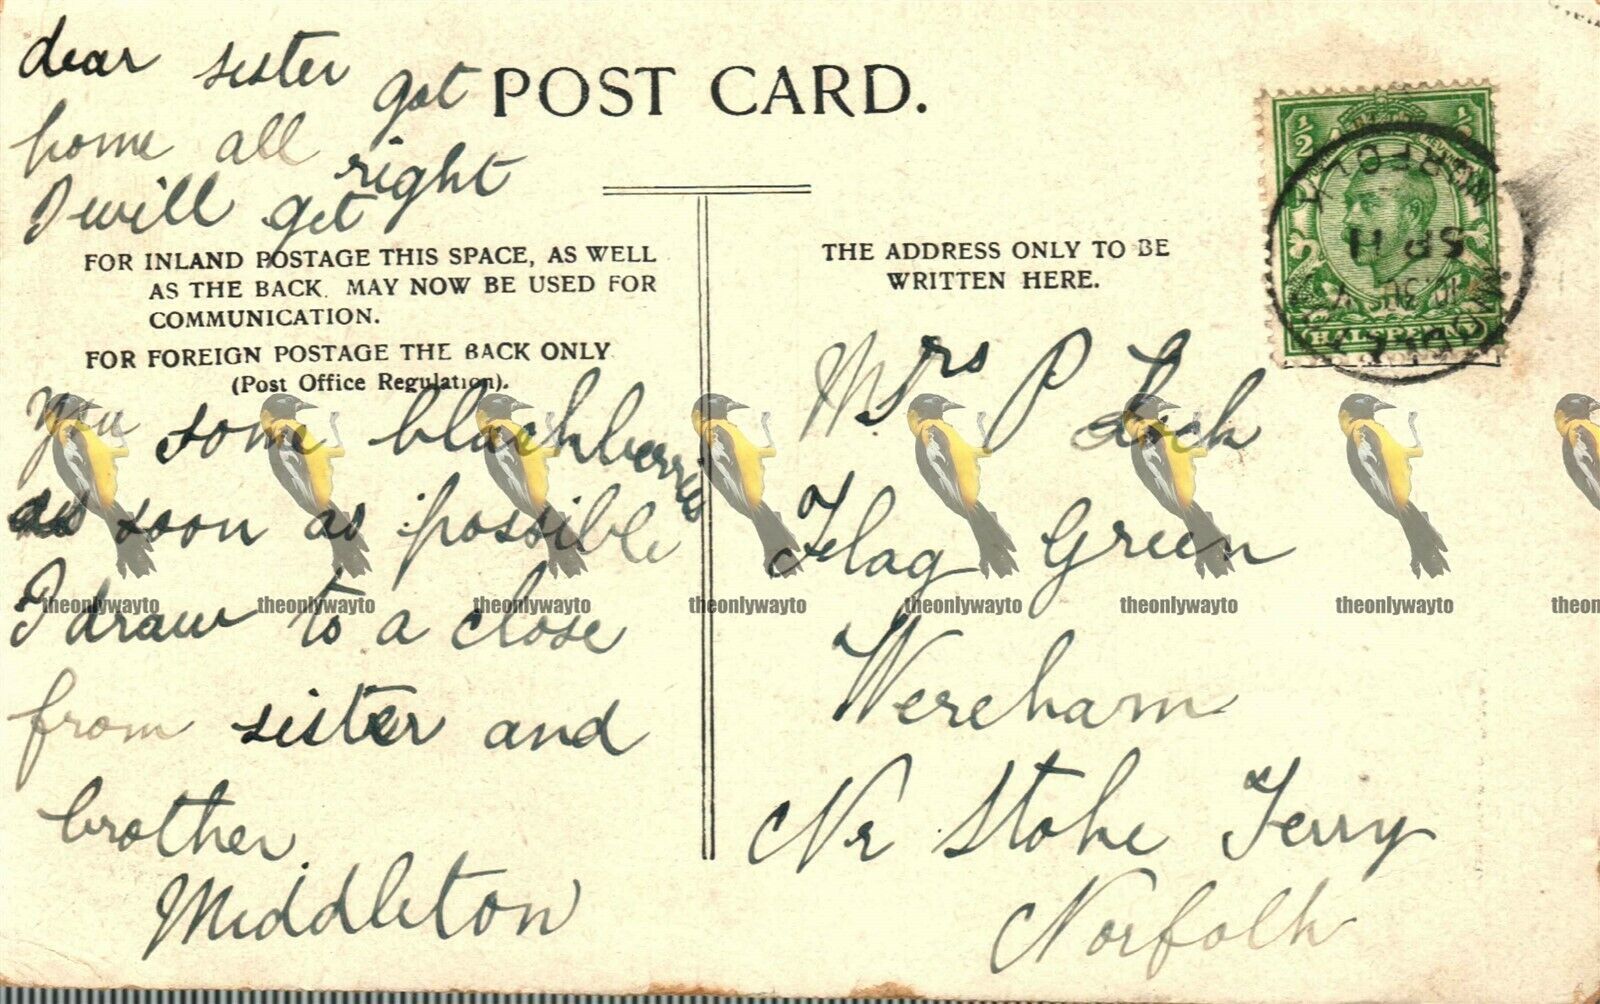 POST CARD.
dear sister got
home all right
I will get
FOR INLAND POSTAGE THIS SPACE, AS WELL
AS THE BACK. MAY NOW BE USED FOR
COMMUNICATION.
FOR FOREIGN POSTAGE THE BACK ONLY
(Post Office Regulation).
You some blackberries
as soon as possible
I draw to a close
from sister and
brother
Middleton
THE ADDRESS ONLY TO BE
WRITTEN HERE.
Mrs P Lock
Flag Green
Wereham
Nr Stoke Ferry
Norfolk
1/2
HALFPENNY
NORFOLK
SP 11
theonlywayto theonlywayto theonlywayto theonlywayto theonlywayto theonlywayto theonlywayto theon